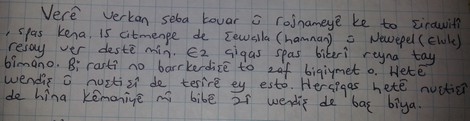 Verê verkan seba kovar û rojnameyê ke to şirawiti
, spas kena. 15 çitmenpe de Şewçila (hamnan) û Newepel (Elule)
resay ver destê min. Ez çiqas spas bikeri reyna tay
bimano. Bi rasti no barrkerdişê to zaf biqiymet o. Hetê
wendiş û nuştişi de tesîrê ey esto. Herçiqas hetê nuştişi
de hîna kêmaniyê mi bibê zî wendiş de baş biya.